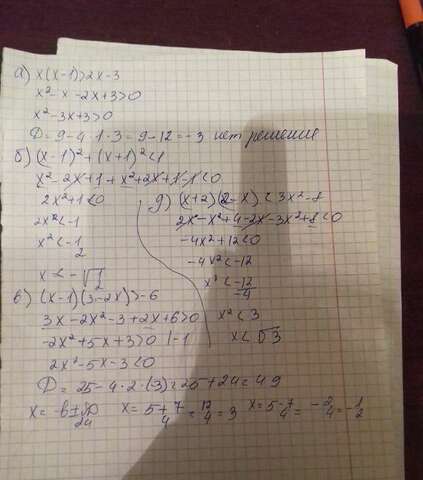 а) x(x-1)>2x-3
x²-x-2x+3>0
x²-3x+3>0
D=9-4·1·3=9-12=-3 нет решения
б) (x-1)²+(x+1)²<1
x²-2x+1+x²+2x+1-1<0
2x²+1<0
2x²<-1
x²<-1/2
x<-√1/2
д) (x+2)(2-x)<3x²-8
2x-x²+4-2x-3x²+8<0
-4x²+12<0
-4x²<-12
x²<-12/-4
x²<3
x<√3
в) (x-1)(3-2x)>-6
3x-2x²-3+2x+6>0
-2x²+5x+3>0 |-1
2x²-5x-3<0
D=25-4·2·(-3)=25+24=49
x=-b±√D/2a x=5+7/4=12/4=3 x=5-7/4=-2/4=-1/2